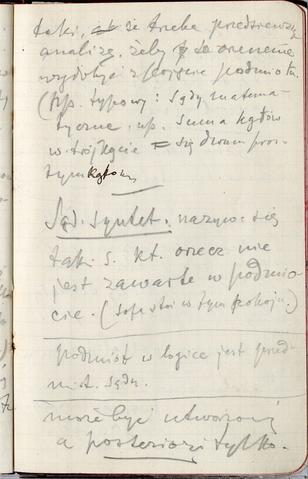 taki, że trzeba przedsięwziąć
analizę, żeby orzeczenie
wydobyć z pojęcia podmiotu.
(Np. typowy: sądy matema-
tyczne, np. suma kątów
w trójkącie = się dwom pros-
tym kątom
Sąd syntet. nazywa się
taki s. kt. orzecz. nie
jest zawarte w podmio-
cie. (sofa stoi w tym pokoju.)
podmiot w logice jest przed-
miot. sądu.
może być utworzony
a posteriori tylko.